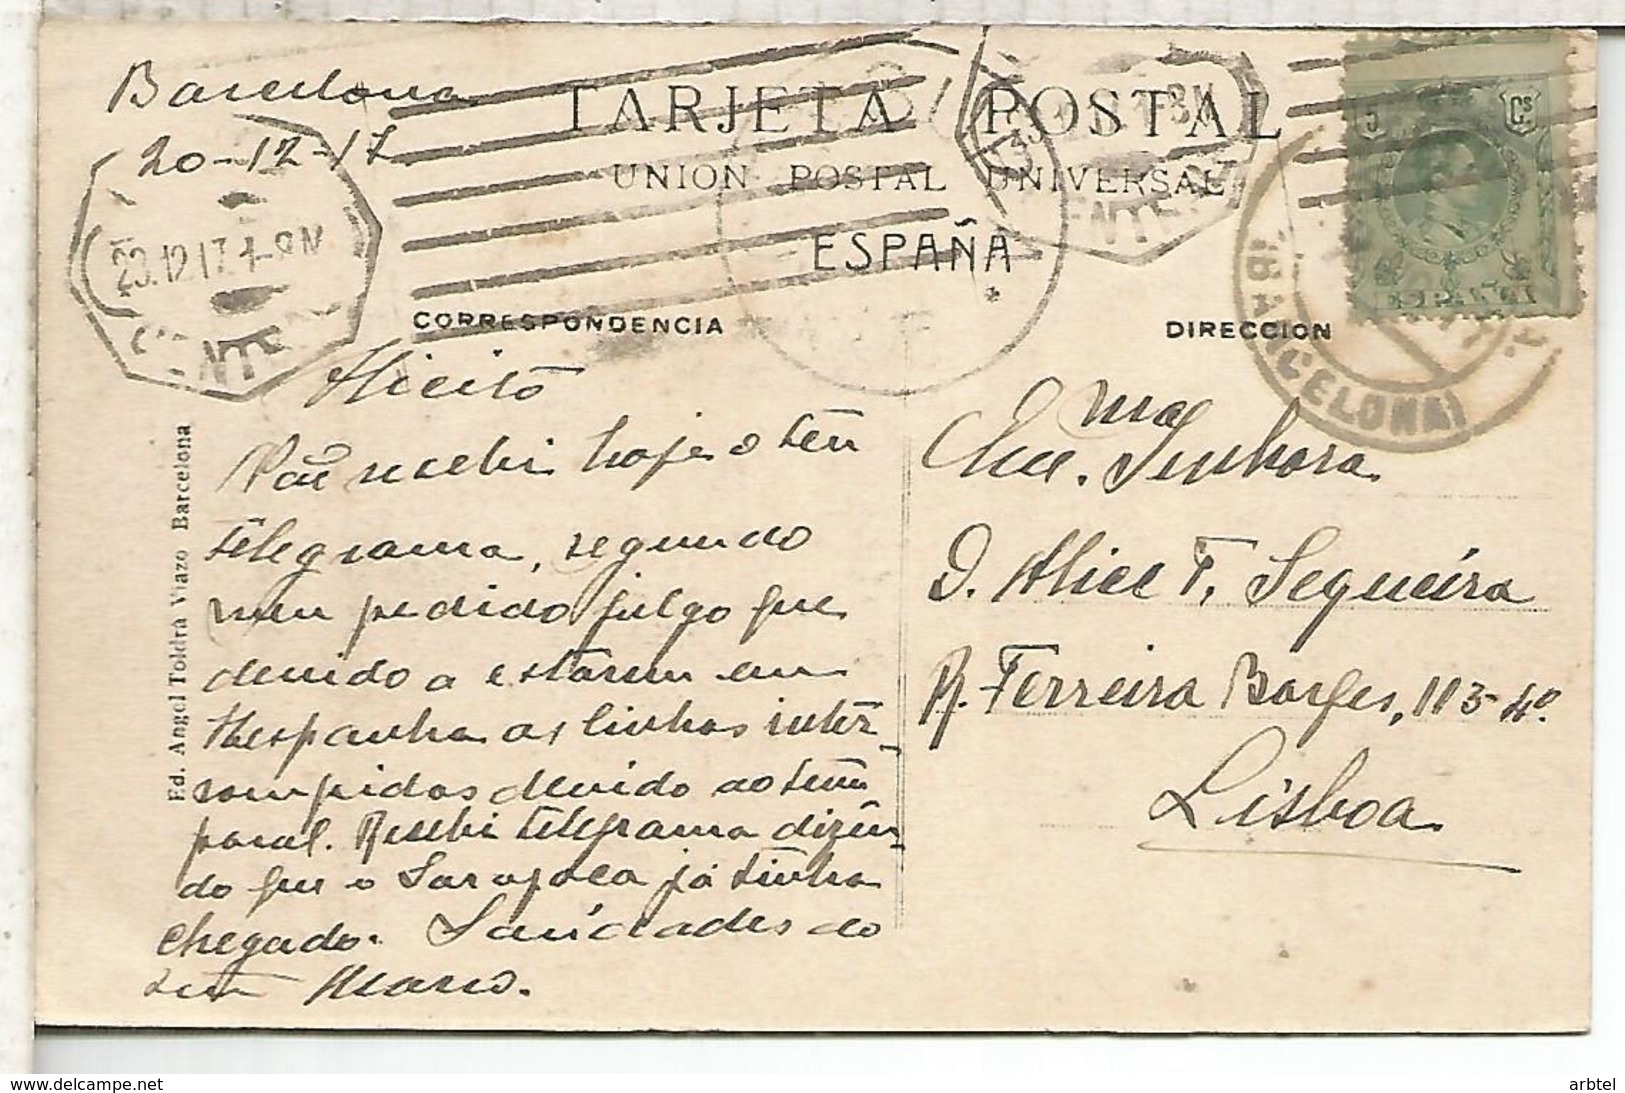 Barcelona
20-12-17
TARJETA POSTAL
UNION POSTAL UNIVERSAL
ESPAÑA
23.12.17.
5 Cs
ESPAÑA
BARCELONA
CORRESPONDENCIA
DIRECCION
Alicitó
Não recebi hoje o teu
telegrama, segundo
meu pedido julgo que
devido a estarem em
Hespanha as linhas inter
rompidas devido ao tem
poral. Recebi telegrama dizen
do que o já tinha
chegado. Saudades do
teu Mario.
Exma. Senhora
D. Alice F. Sequeira
R. Ferreira Borges, 113-4º.
Lisboa
Ed. Angel Toldrá Viazo Barcelona
www.delcampe.net
arbtel